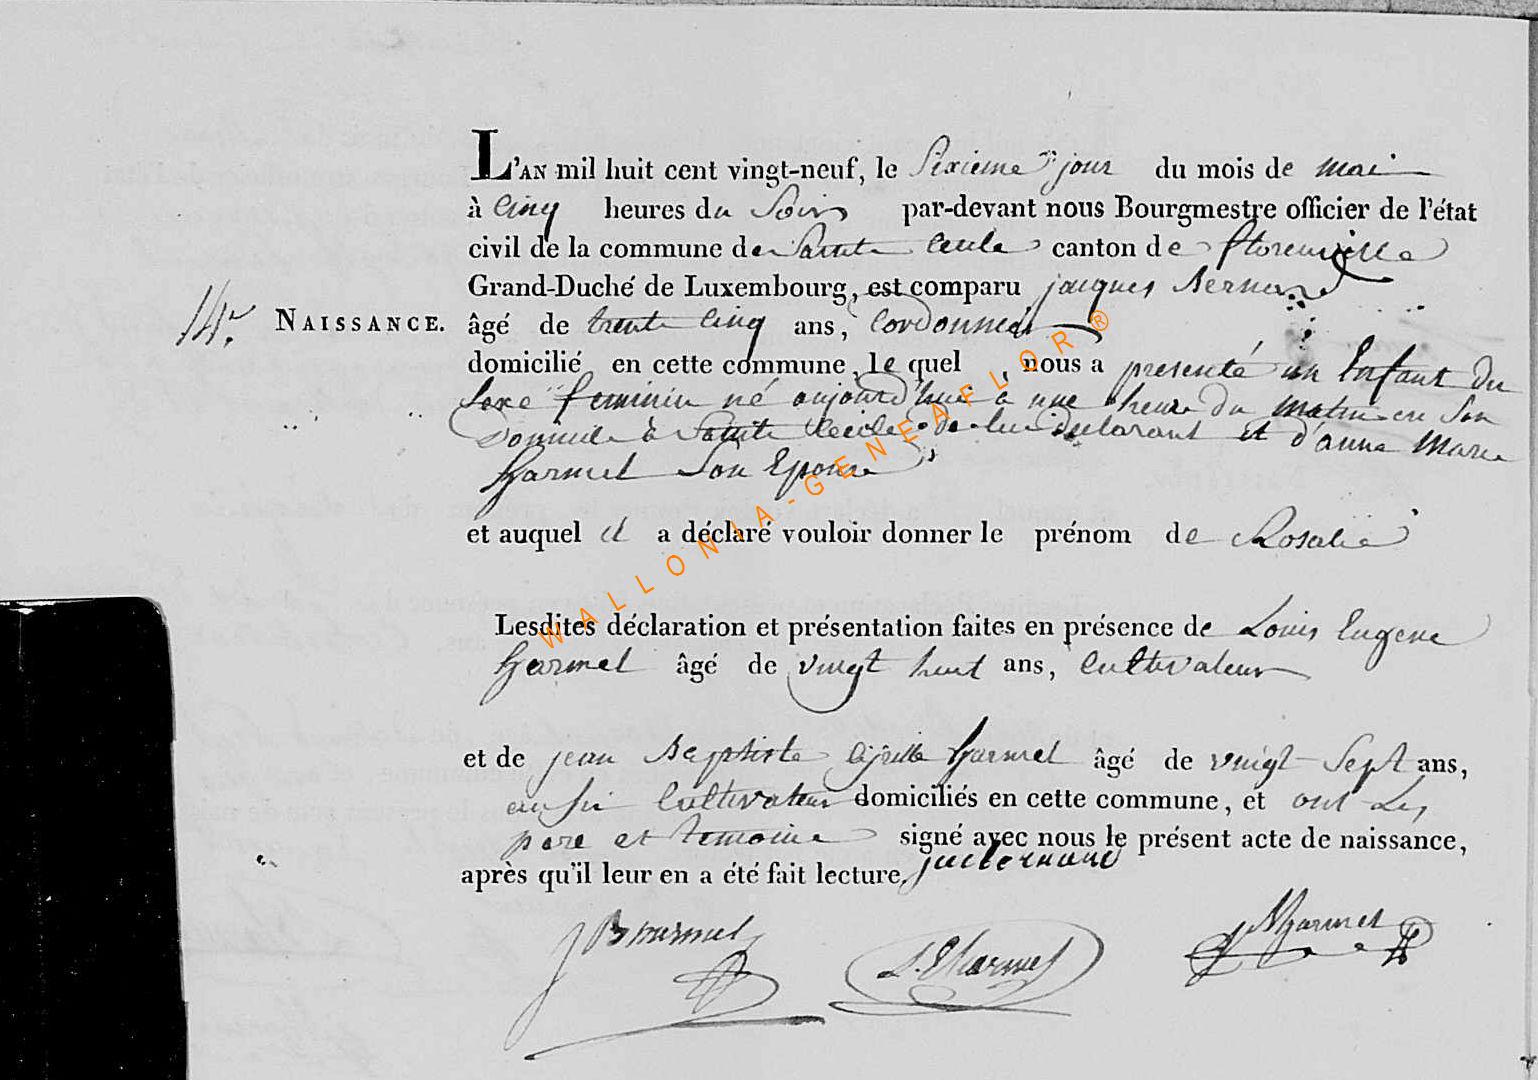 L'AN mil huit cent vingt-neuf, le Sixieme jour du mois de mai
à Cinq heures du Soir par-devant nous Bourgmestre officier de l'état
civil de la commune de Sainte Cecile canton de florenville
Grand-Duché de Luxembourg, est comparu jacques
14. NAISSANCE. âgé de trente Cinq ans, Cordonnier
domicilié en cette commune, le quel, nous a presenté un Enfant du
Sexe feminin né aujourd'hui a une heure du matin en Son
Domicile à Sainte Cecile de lui declarant et d'anna Marie
harmel Son Epouse
et auquel il a déclaré vouloir donner le prénom de Rosalie
Lesdites déclaration et présentation faites en présence de Louis Eugene
harmel âgé de vingt huit ans, Cultivateur
et de jean Baptiste harmel âgé de vingt Sept ans,
aussi Cultivateur domiciliés en cette commune, et ont Les
pere et temoins signé avec nous le présent acte de naissance,
après qu'il leur en a été fait lecture.
L. E harmel
harmel
WALLONIA-GENEAFLOR®